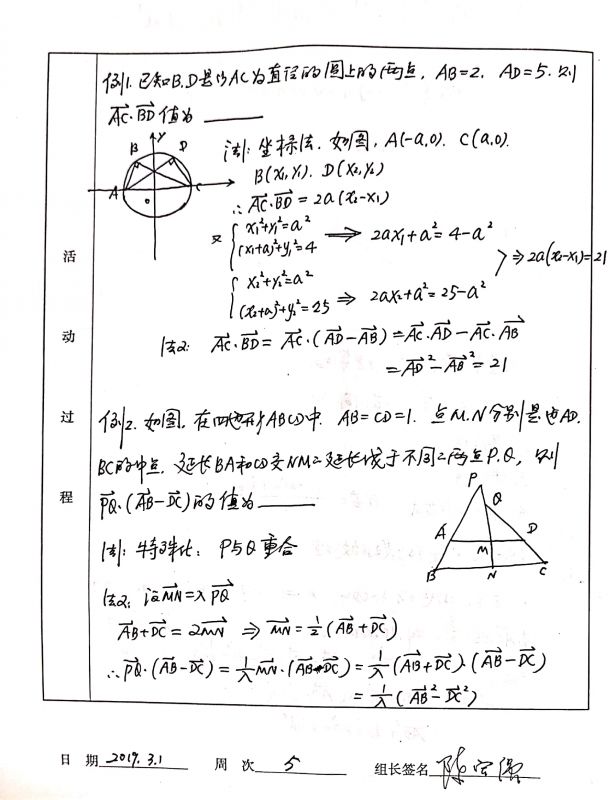 例1. 已知B.D是以AC为直径的圆上的两点, AB=2, AD=5. 则
\overrightarrow{AC}·\overrightarrow{BD}值为 ______
法1: 坐标法. 如图, A(-a,0). C(a,0).
B(x₁,y₁). D(x₂,y₂)
∴ \overrightarrow{AC}·\overrightarrow{BD} = 2a(x₂-x₁)
又 { x₁²+y₁²=a²
(x₁+a)²+y₁²=4 ⟹ 2ax₁+a²=4-a²
{ x₂²+y₂²=a²
(x₂+a)²+y₂²=25 ⟹ 2ax₂+a²=25-a²
⟹ 2a(x₂-x₁)=21
y
B D
A C
o
法2: \overrightarrow{AC}·\overrightarrow{BD} = \overrightarrow{AC}·(\overrightarrow{AD}-\overrightarrow{AB}) = \overrightarrow{AC}·\overrightarrow{AD}-\overrightarrow{AC}·\overrightarrow{AB}
= \overrightarrow{AD}²-\overrightarrow{AB}² = 21
活
动
过
程
例2. 如图, 在四边形ABCD中. AB=CD=1. 点M.N分别是边AD.
BC的中点. 延长BA和CD交NM之延长线于不同之两点P.Q, 则
\overrightarrow{PQ}·(\overrightarrow{AB}-\overrightarrow{DC})的值为 ______
P
Q
A M D
B N C
法1: 特殊化: P与Q重合
法2: 设\overrightarrow{MN}=λ\overrightarrow{PQ}
\overrightarrow{AB}+\overrightarrow{DC}=2\overrightarrow{MN} ⟹ \overrightarrow{MN}=½(\overrightarrow{AB}+\overrightarrow{DC})
∴ \overrightarrow{PQ}·(\overrightarrow{AB}-\overrightarrow{DC}) = 1/λ \overrightarrow{MN}·(\overrightarrow{AB}-\overrightarrow{DC}) = 1/λ(\overrightarrow{AB}+\overrightarrow{DC})·(\overrightarrow{AB}-\overrightarrow{DC})
= 1/λ(\overrightarrow{AB}²-\overrightarrow{DC}²)
日 期 2019.3.1 周 次 5 组长签名 陈